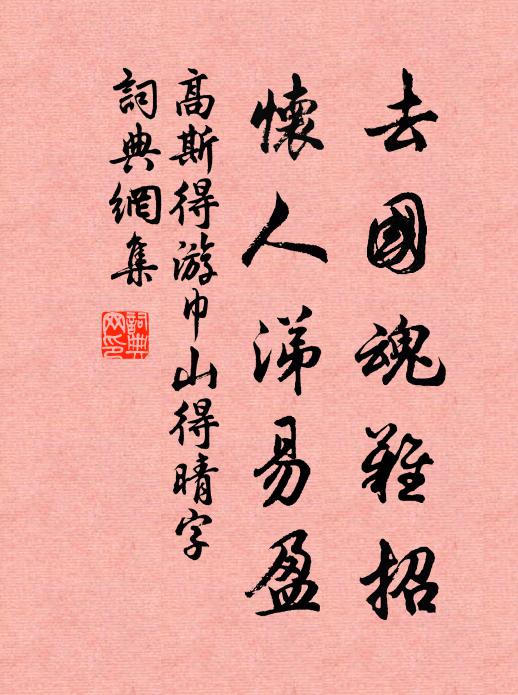 去國魂難招
懷人涕易盈
高斯得游巾山得晴字
詞典網集
詞典網印